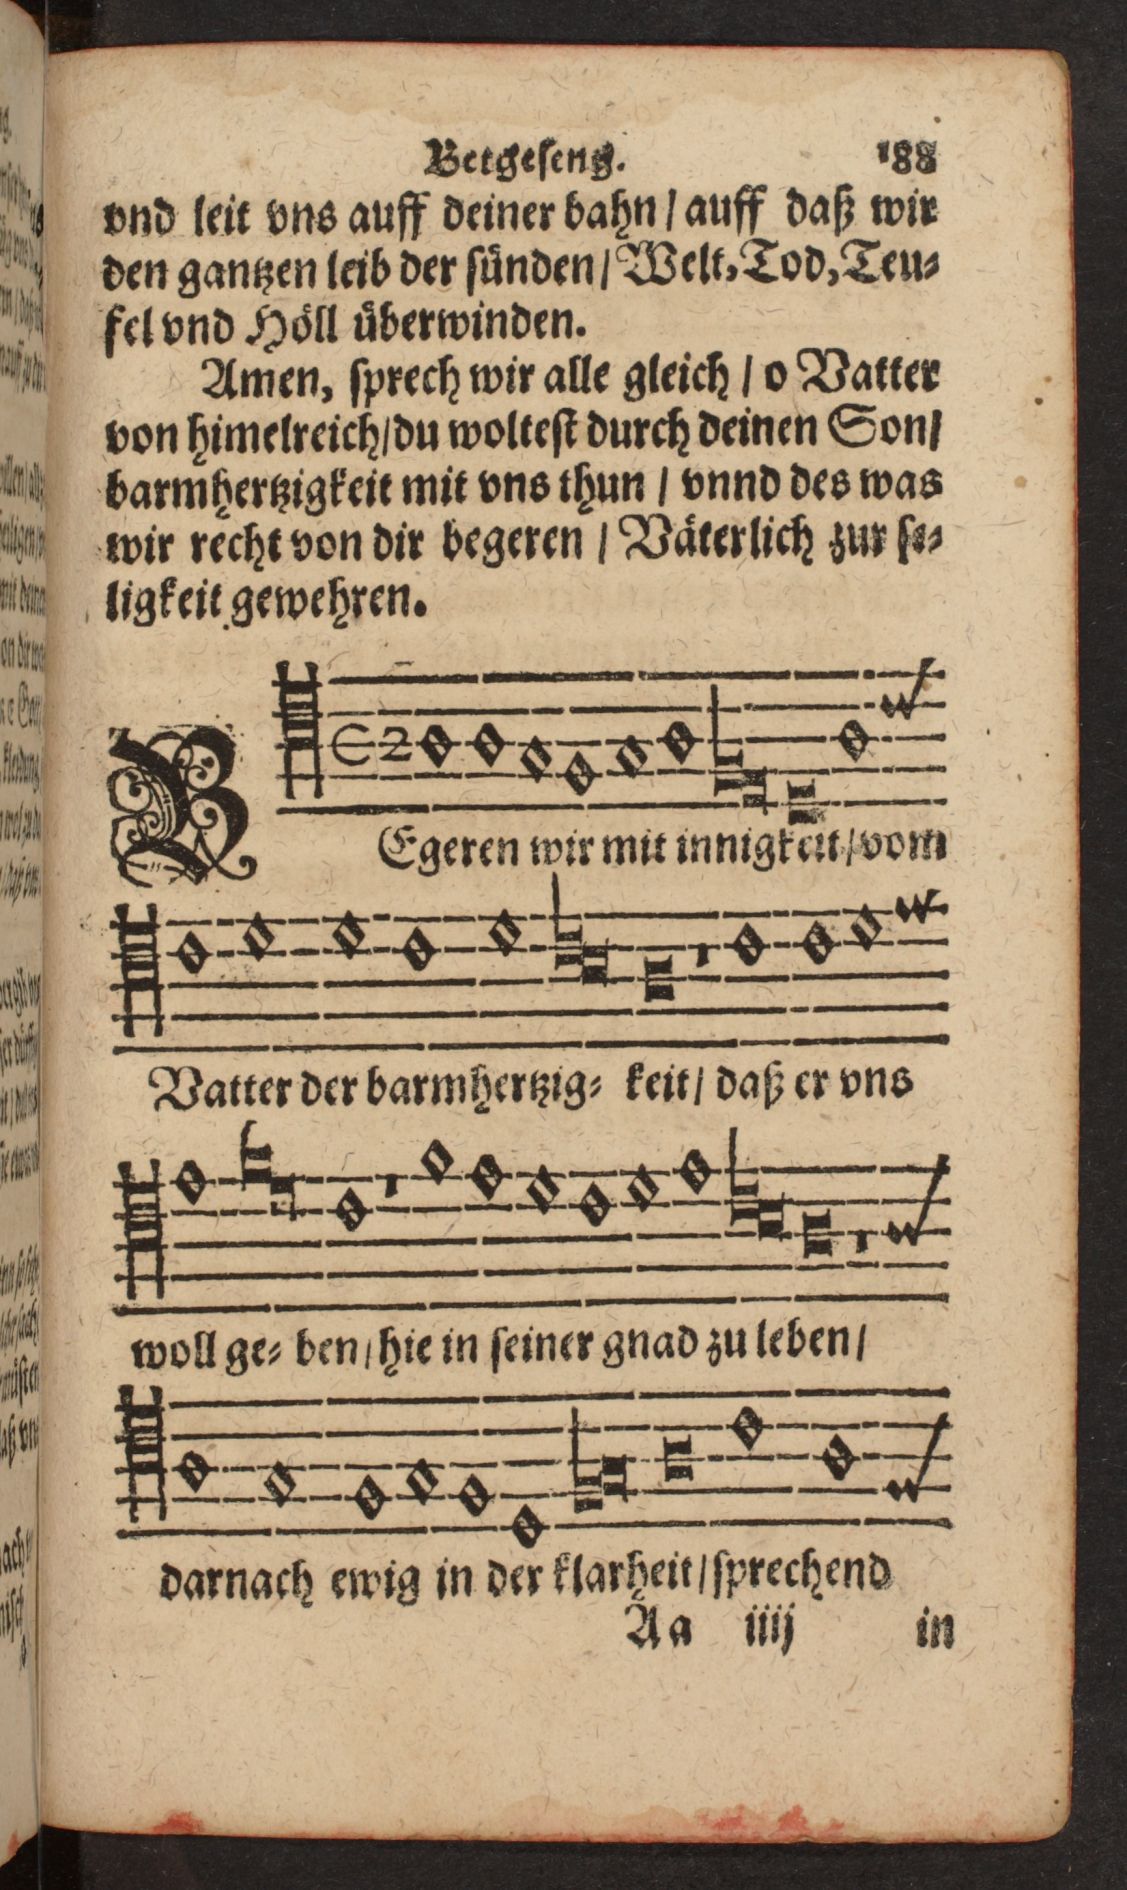 Betgeseng. 188
vnd leit vns auff deiner bahn / auff daß wir
den gantzen leib der sünden / Welt, Tod, Teu-
fel vnd Höll überwinden.
Amen, sprech wir alle gleich / o Vatter
von himelreich / du woltest durch deinen Son /
barmhertzigkeit mit vns thun / vnnd des was
wir recht von dir begeren / Väterlich zur se-
ligkeit gewehren.
BEgeren wir mit innigkeit / vom
Vatter der barmhertzig- keit / daß er vns
woll ge- ben / hie in seiner gnad zu leben /
darnach ewig in der klarheit / sprechend
Aa iiij in